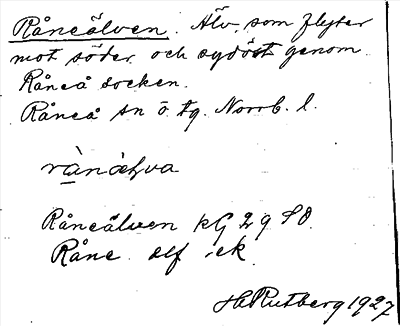 Råneälven. Älv, som flyter
mot söder och sydöst genom
Råneå socken.
Råneå sn ö. tg. Norrb. l.
Råneälven kG 29 SO
Råne elf ek
H Rutberg 1927